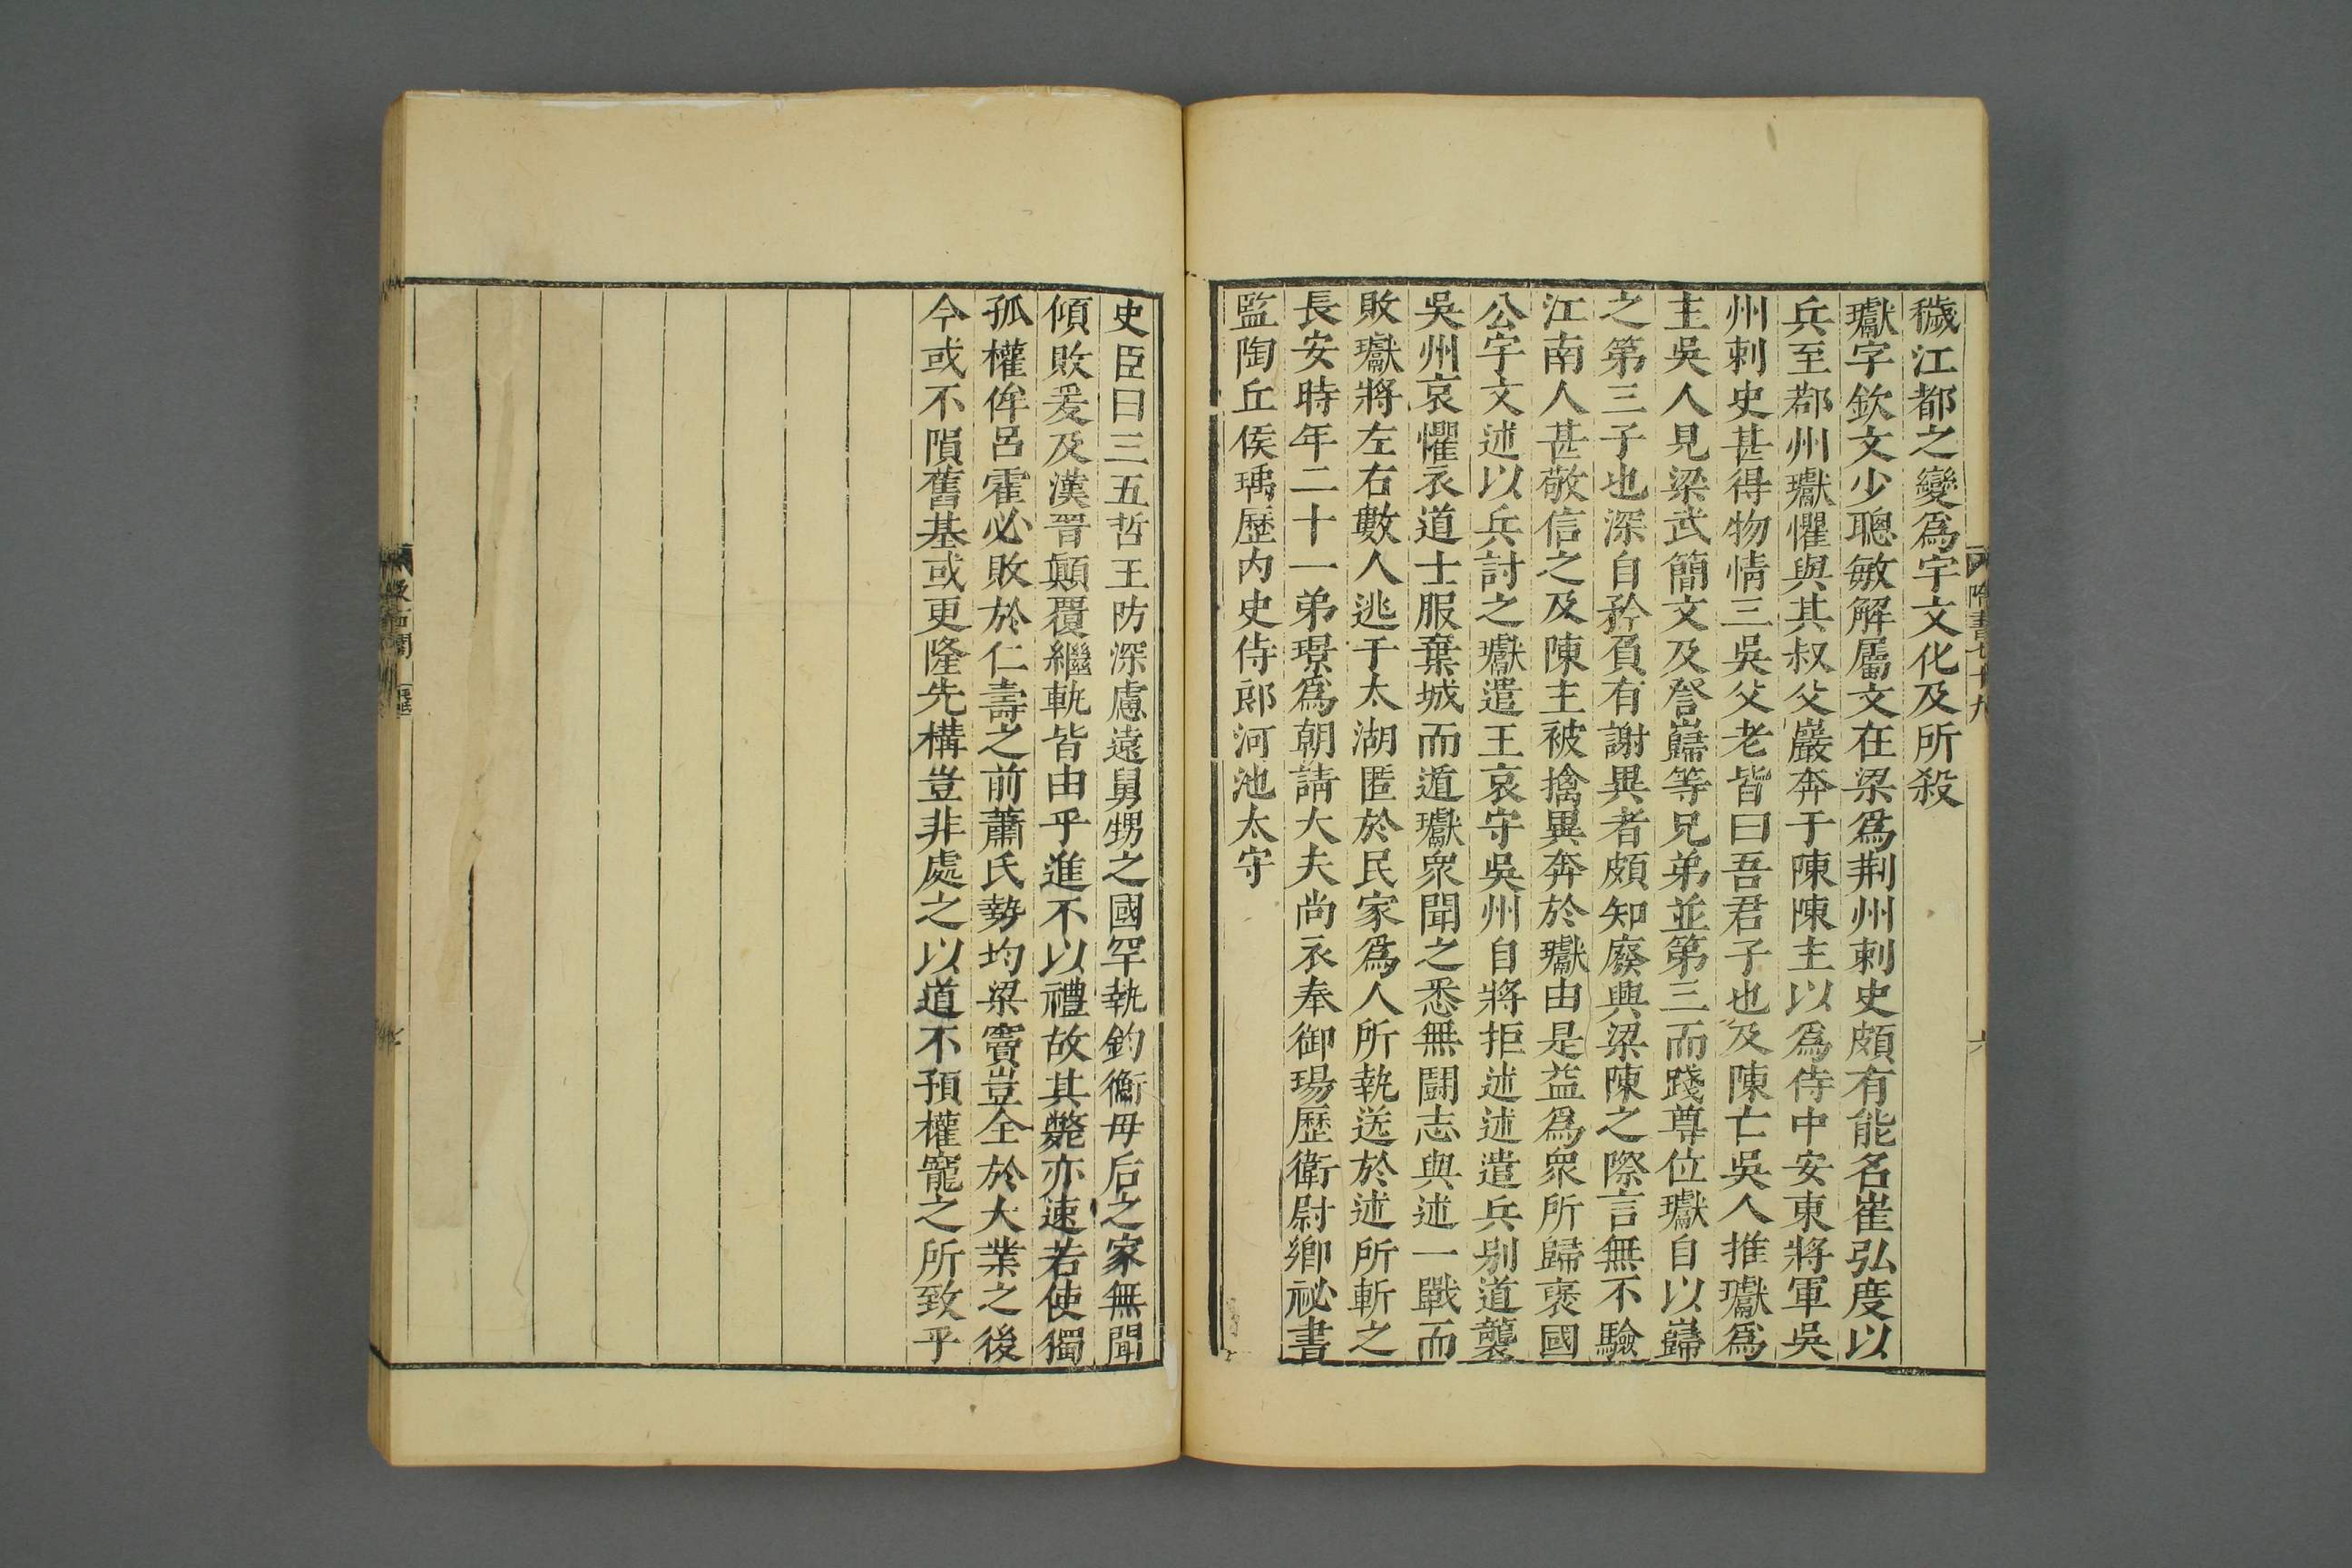 穢江都之變爲宇文化及所殺
瓛字欽文少聰敏解屬文在梁爲荆州刺史頗有能名崔弘度以
兵至郡州瓛懼與其叔父巖奔于陳陳主以爲侍中安東將軍吳
州刺史甚得物情三吳父老皆曰吾君子也及陳亡吳人推瓛爲
主吳人見梁武簡文及詧巋等兄弟並第三而踐尊位瓛自以巋
之第三子也深自矜負有謝異者頗知廢興梁陳之際言無不驗
江南人甚敬信之及陳主被擒異奔於瓛由是益爲衆所歸褒國
公宇文述以兵討之瓛遣王哀守吳州自將拒述述遣兵别道襲
吳州哀懼衣道士服棄城而遁瓛衆聞之悉無鬬志與述一戰而
敗瓛將左右數人逃于太湖匿於民家爲人所執送於述所斬之
長安時年二十一弟璟爲朝請大夫尚衣奉御瑒歷衛尉卿祕書
監陶丘侯瑀歷内史侍郎河池太守
隋書七十九
六
史臣曰三五哲王防深慮遠舅甥之國罕執鈞衡毋后之家無聞
傾敗爰及漢晉顛覆繼軌皆由乎進不以禮故其斃亦速若使獨
孤權侔呂霍必敗於仁壽之前蕭氏勢均梁竇豈全於大業之後
今或不隕舊基或更隆先構豈非處之以道不預權寵之所致乎